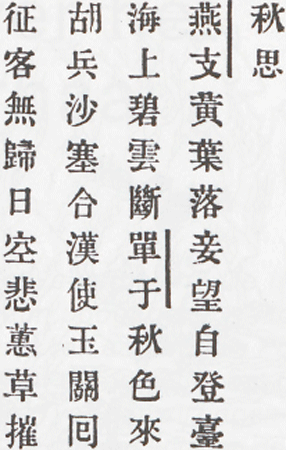 秋思
燕支黄葉落妾望自登臺
海上碧雲斷單于秋色來
胡兵沙塞合漢使玉關囘
征客無歸日空悲蕙草摧